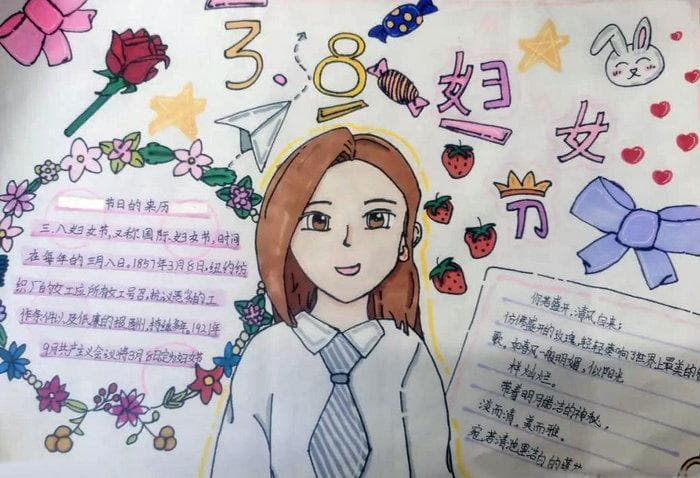 3.8妇女节
节日的来历
三.八妇女节,又称国际妇女节,时间
在每年的三月八日.1857年3月8日,纽约纺
织厂的女工应所有女工号召,抗议恶劣的工
作条件,及低廉的报酬,持续多年,1921年
9月共产主义会议将3月8日定为妇女节
你若盛开,清风自来;
仿佛盛开的玫瑰,轻轻奏响了世界上最美的
歌,如春风一般明媚,似阳光
一样灿烂。
带着明月皓洁的神秘,
淡而清,美而雅。
宛若清池里洁白的莲